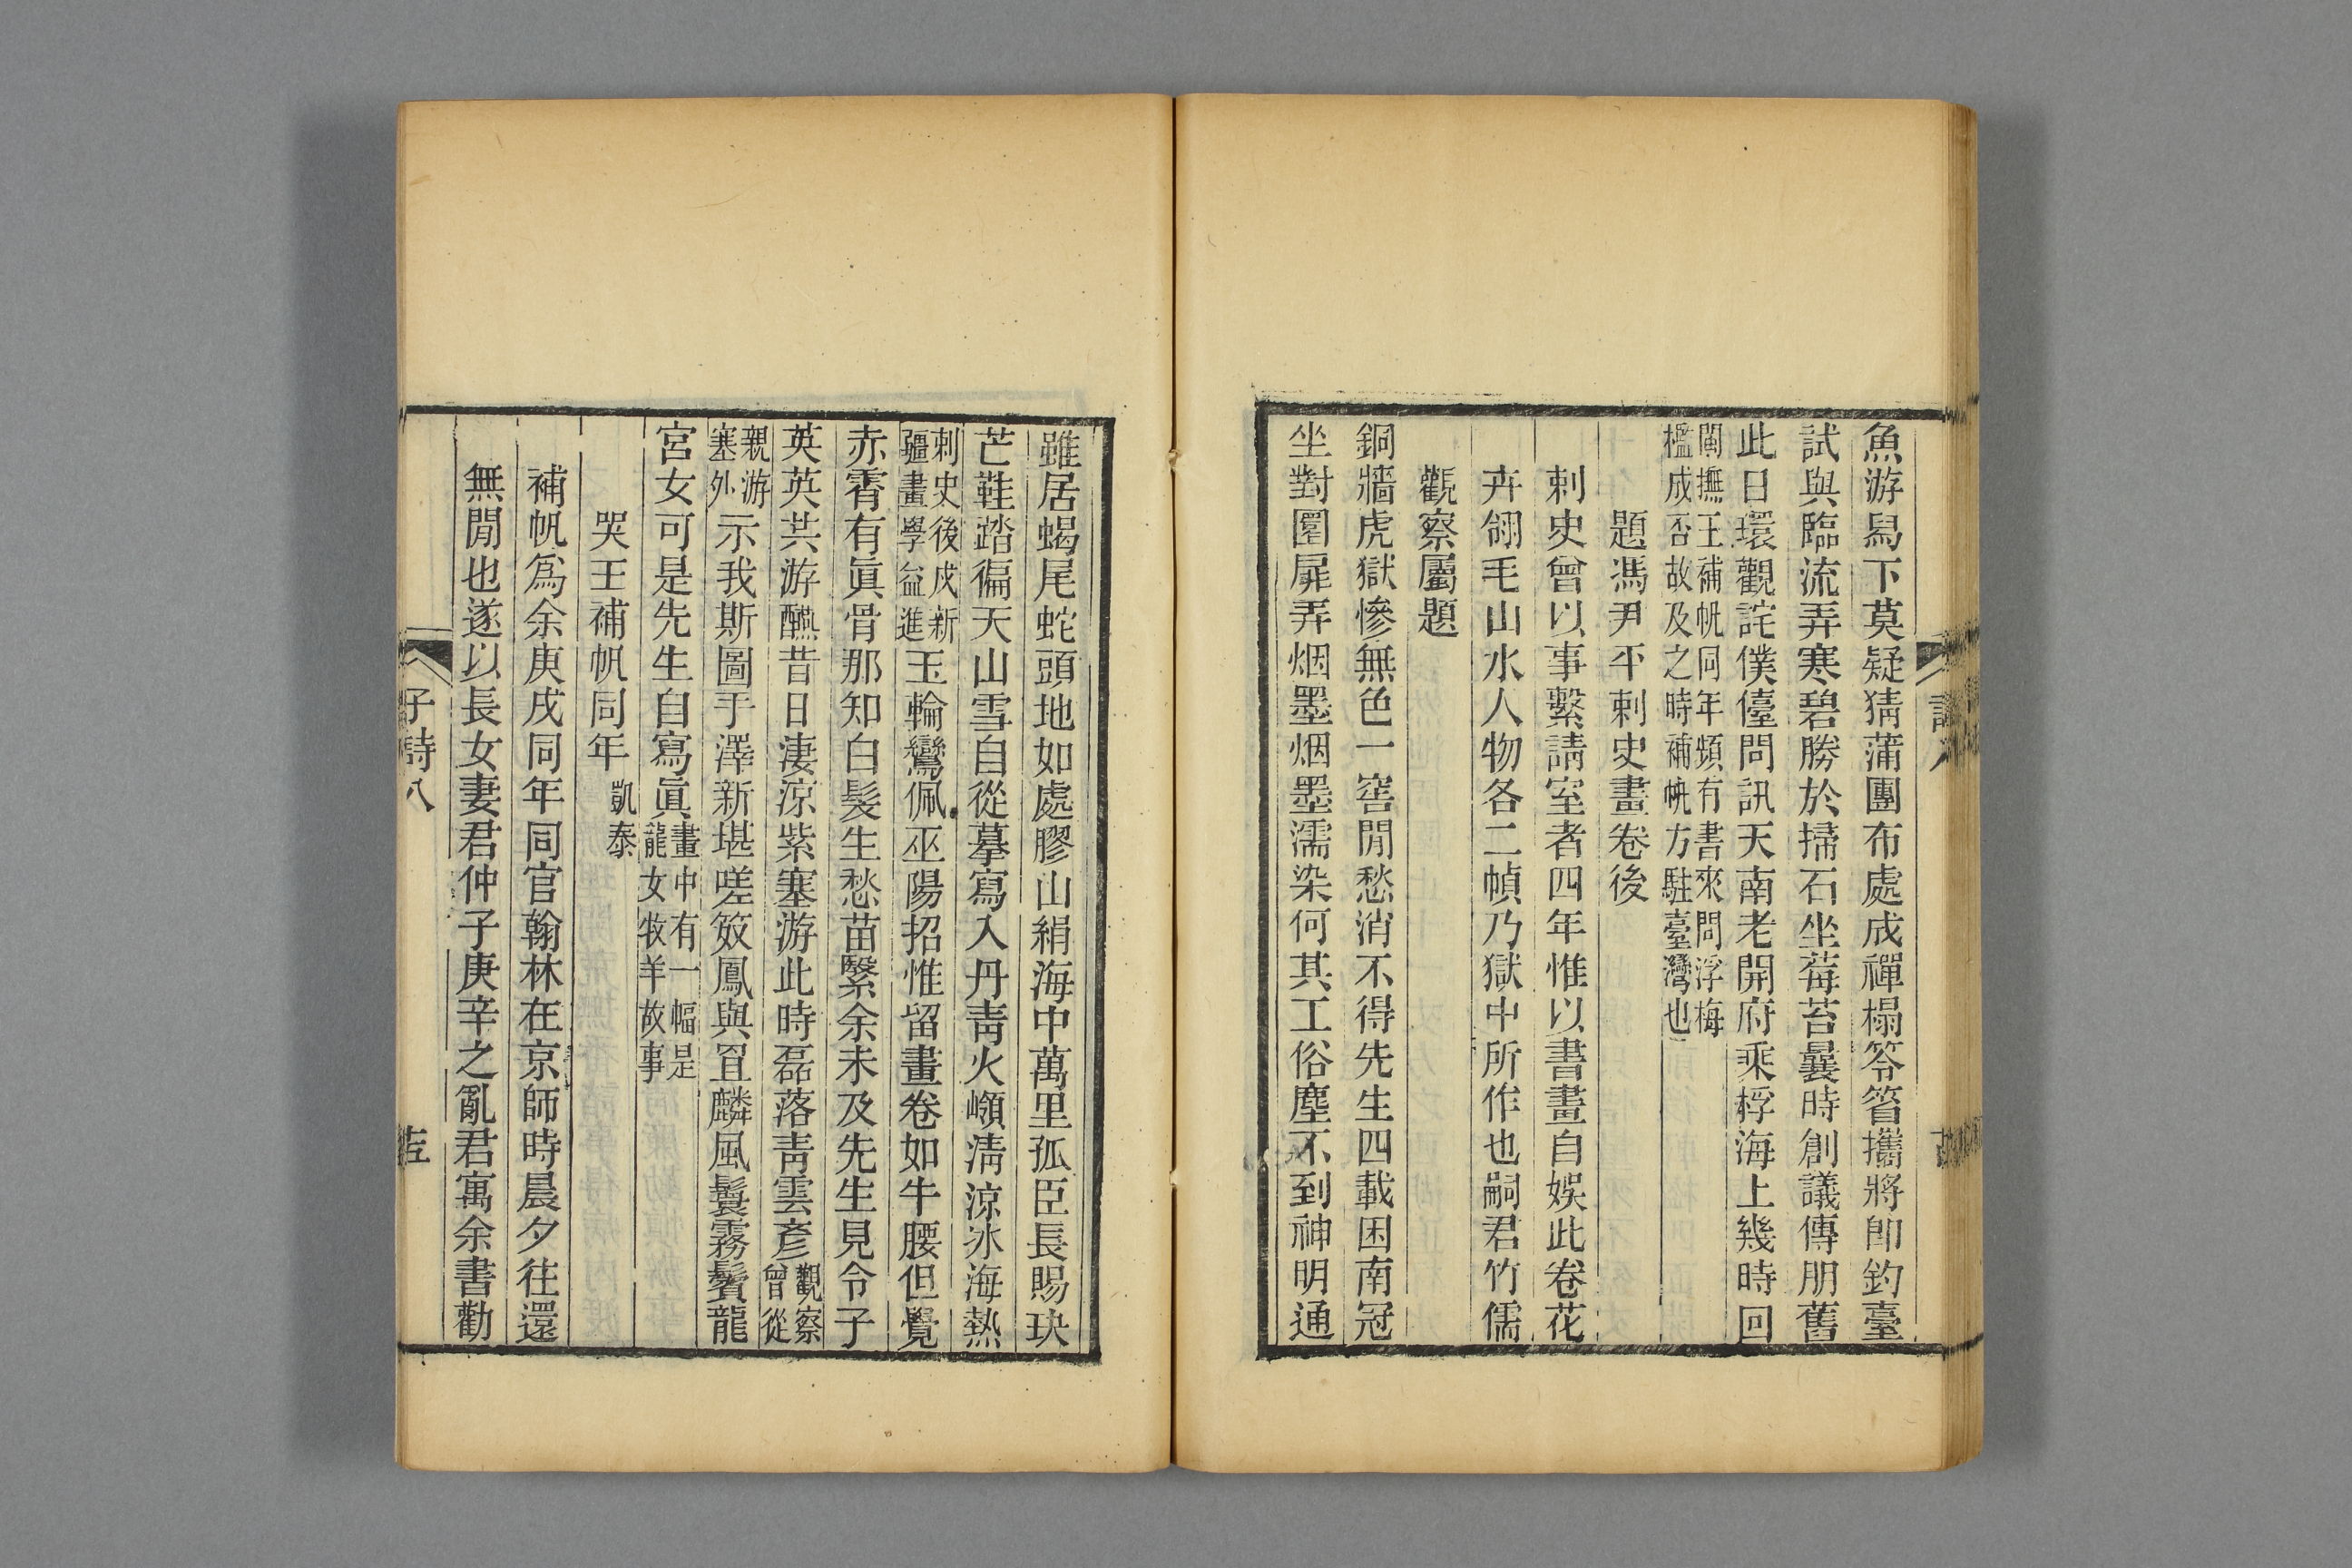 魚游舄下莫疑猜蒲團布處成禪榻笭箵攜將卽釣臺
試與臨流弄寒碧勝於掃石坐莓苔曩時創議傳朋舊
此日環觀詫僕儓問訊天南老開府乘桴海上幾時回
閩撫王補帆同年頻有書來問浮梅
檻成否故及之時補帆方駐臺灣也
題馮尹平刺史畫卷後
刺史曾以事繫請室者四年惟以書畫自娛此卷花
卉翎毛山水人物各二幀乃獄中所作也嗣君竹儒
觀察屬題
銅牆虎獄慘無色一窖閒愁消不得先生四載困南冠
坐對圜扉弄烟墨烟墨濡染何其工俗塵不到神明通
雖居蝎尾蛇頭地如處膠山絹海中萬里孤臣長賜玦
芒鞋踏徧天山雪自從摹寫入丹青火嶺淸涼冰海熱
刺史後戍新
疆畫學益進玉輪鸞佩巫陽招惟留畫卷如牛腰但覺
赤霄有眞骨那知白髮生愁苗繄余未及先生見令子
英英共游醼昔日淒涼紫塞游此時磊落靑雲彥觀察
曾從
親游
塞外示我斯圖手澤新堪嗟笯鳳與罝麟風鬟霧鬢龍
宮女可是先生自寫眞畫中有一幅是
龍女牧羊故事
哭王補帆同年凱泰
補帆爲余庚戌同年同官翰林在京師時晨夕往還
無閒也遂以長女妻君仲子庚辛之亂君寓余書勸
詩八